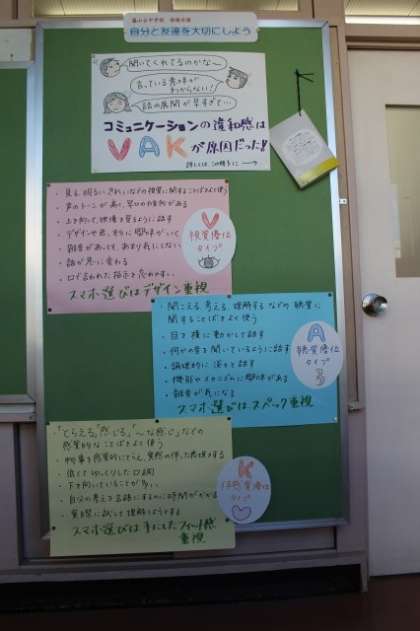 自分と友達を大切にしよう
聞いてくれてるのかな〜
言っている意味がわからない!
話の展開が早すぎて…
コミュニケーションの違和感は
VAKが原因だった!!
V
視覚優位
タイプ
・見る、明るい、きれいなどの視覚に関することばをよく使う
・声のトーンが高く、早口の傾向がある
・上を向いて、映像を見るように話す
・デザインや色、形に
・雑音があっても、あまり気にしない
・話が急に変わる
・口で言われた指示を忘れやすい
スマホ選びはデザイン重視
A
聴覚優位
タイプ
・聞こえる、考える、理解するなどの聴覚に
関することばをよく使う
・目を横に動かして話す
・何かの音を聞いているように話す
・論理的に淡々と話す
・機能やメカニズムに興味がある
・雑音が気になる
スマホ選びはスペック重視
K
体感覚優位
タイプ
・「とらえる」「感じる」「〜な感じ」などの
感覚的なことばをよく使う
・物事を感覚的にとらえ、実感の伴った表現する
・低くてゆっくりした口調
・下を向いていることが多い
・自分の考えを言語にするのに時間がかかる
・実際に試して理解しようとする
スマホ選びは手にしたフィット感
重視